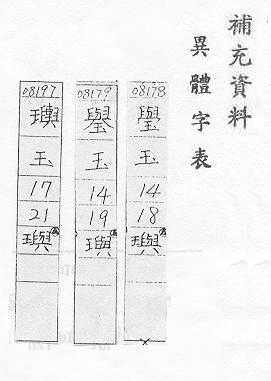 補充資料
異體字表
08178
玉
14
18
璵
08179
玉
14
19
璵
08197
玉
17
21
璵